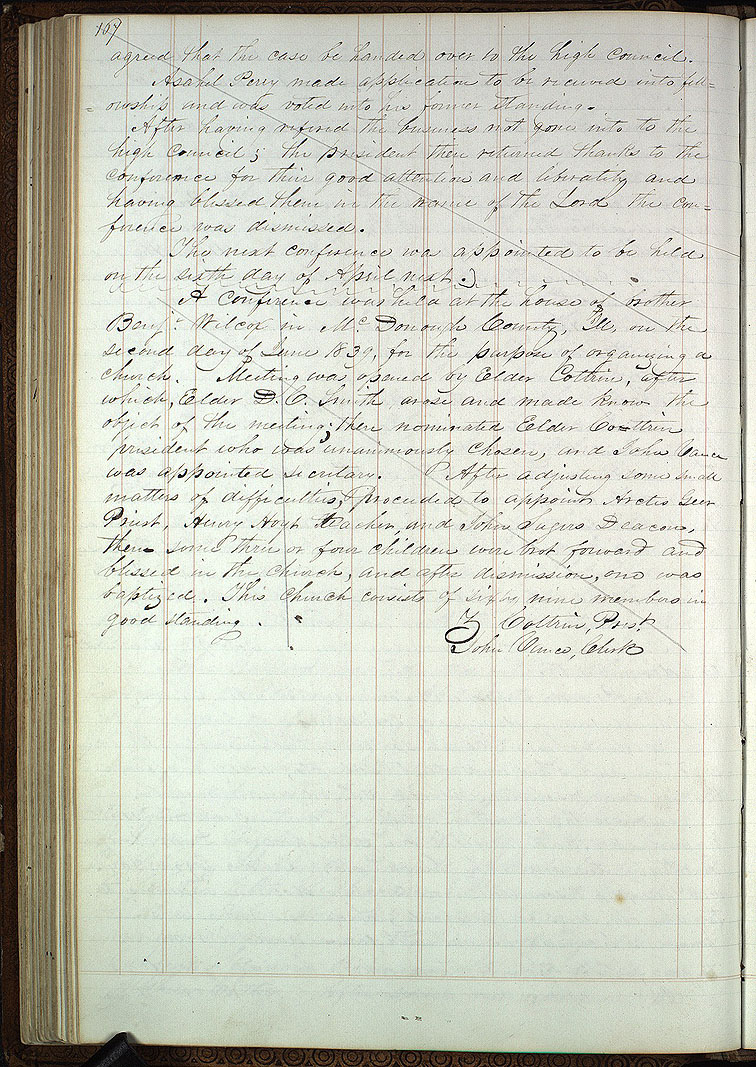 167
agreed that the case be handed over to the high council.
Asahel Perry made application to be received into fel=
=owship and was voted into his former standing.
After having refered the business not gone into to the
high council; the president then returned thanks to the
conference for their good attention and liberality and
having blessed them in the name of the Lord the con=
ference was dismissed.
The next conference was appointed to be held
on the sixth day of April next.
A conference was held at the house of brother
Benjn. Wilcox in Mc Donough County, Ill, on the
second day of June 1839, for the purpose of organizing a
church. Meeting was opened by Elder Coltrin, after
which, Elder D. C. Smith arose and made know the
object of the meeting; then nominated Elder Coltrin
president who was unanimously chosen, and John Vance
was appointed secretary. After adjusting some small
matters of difficulties, proceeded to appoint Arctis Geer
Priest, Henry Hoyt teacher, and John Lagers Deacon,
then some three or four children were brot forward and
blessed in the church, and after dismission, one was
baptized. This church consists of sixty nine members in
good standing.
Z Coltrin, Prest.
John Vance, Clerk